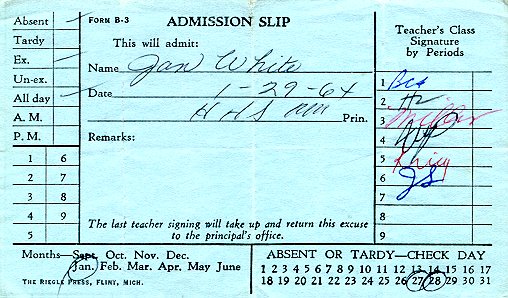 Absent
Tardy
Ex.
Un-ex.
All day
A. M.
P. M.
1 6
2 7
3 8
4 9
5
FORM B-3 ADMISSION SLIP
This will admit:
Name Jan White
Date 1-29-64
HHS Prin.
Remarks:
The last teacher signing will take up and return this excuse
to the principal's office.
Teacher's Class
Signature
by Periods
1
2
3 Miller
4
5 King
6 JS
7
8
9
Months—Sept. Oct. Nov. Dec.
Jan. Feb. Mar. Apr. May June
THE RIEGLE PRESS, FLINT, MICH.
ABSENT OR TARDY—CHECK DAY
1 2 3 4 5 6 7 8 9 10 11 12 13 14 15 16 17
18 19 20 21 22 23 24 25 26 27 28 29 30 31